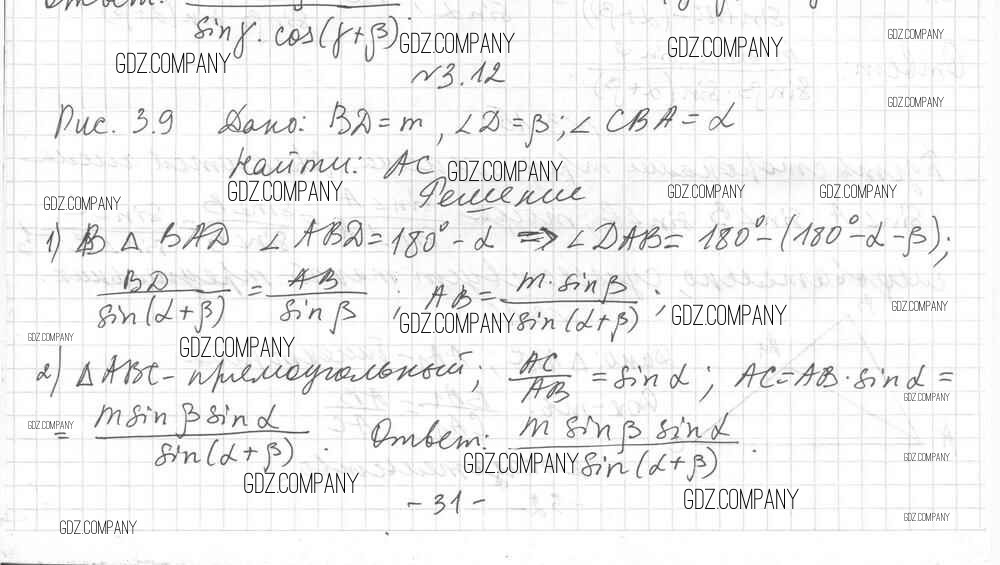 sinγ · cos(γ+β)
GDZ.COMPANY
GDZ.COMPANY
GDZ.COMPANY
GDZ.COMPANY
№3.12
GDZ.COMPANY
Рис. 3.9 Дано: BD=m, ∠D=β; ∠CBA=α
Найти: AC
GDZ.COMPANY
GDZ.COMPANY
GDZ.COMPANY
GDZ.COMPANY
GDZ.COMPANY
Решение
1) В △ BAD ∠ABD=180°-α => ∠DAB= 180°-(180°-α-β);
BD/sin(α+β) = AB/sin β; AB= m·sinβ/sin(α+β);
GDZ.COMPANY
GDZ.COMPANY
GDZ.COMPANY
GDZ.COMPANY
GDZ.COMPANY
2) △ABC- прямоугольный; AC/AB = sinα; AC=AB·sinα=
GDZ.COMPANY
GDZ.COMPANY
= m sin β sin α/sin(α+β). Ответ: m sin β sin α/sin(α+β).
GDZ.COMPANY
GDZ.COMPANY
GDZ.COMPANY
GDZ.COMPANY
-31-
GDZ.COMPANY
GDZ.COMPANY